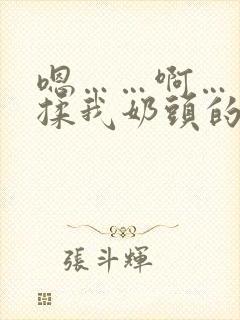 嗯……啊…
揉我奶頭的
張斗輝